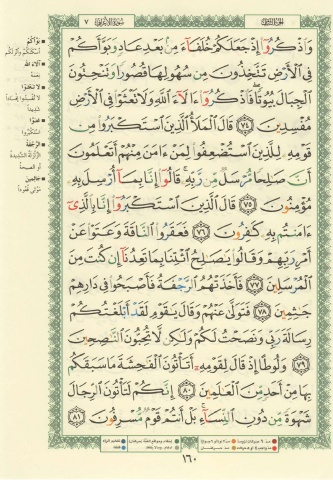 الجزء الثامن
سورة الأعراف ٧
وَٱذْكُرُوٓا۟ إِذْ جَعَلَكُمْ خُلَفَآءَ مِنۢ بَعْدِ عَادٍ وَبَوَّأَكُمْ
فِى ٱلْأَرْضِ تَتَّخِذُونَ مِن سُهُولِهَا قُصُورًا وَتَنْحِتُونَ
ٱلْجِبَالَ بُيُوتًا فَٱذْكُرُوٓا۟ ءَالَآءَ ٱللَّهِ وَلَا تَعْثَوْا۟ فِى ٱلْأَرْضِ
مُفْسِدِينَ ٧٤ قَالَ ٱلْمَلَأُ ٱلَّذِينَ ٱسْتَكْبَرُوا۟ مِن
قَوْمِهِۦ لِلَّذِينَ ٱسْتُضْعِفُوا۟ لِمَنْ ءَامَنَ مِنْهُمْ أَتَعْلَمُونَ
أَنَّ صَٰلِحًا مُّرْسَلٌ مِّن رَّبِّهِۦ قَالُوٓا۟ إِنَّا بِمَآ أُرْسِلَ بِهِۦ
مُؤْمِنُونَ ٧٥ قَالَ ٱلَّذِينَ ٱسْتَكْبَرُوٓا۟ إِنَّا بِٱلَّذِىٓ
ءَامَنتُم بِهِۦ كَٰفِرُونَ ٧٦ فَعَقَرُوا۟ ٱلنَّاقَةَ وَعَتَوْا۟ عَنْ
أَمْرِ رَبِّهِمْ وَقَالُوا۟ يَٰصَٰلِحُ ٱئْتِنَا بِمَا تَعِدُنَآ إِن كُنتَ مِنَ
ٱلْمُرْسَلِينَ ٧٧ فَأَخَذَتْهُمُ ٱلرَّجْفَةُ فَأَصْبَحُوا۟ فِى دَارِهِمْ
جَٰثِمِينَ ٧٨ فَتَوَلَّىٰ عَنْهُمْ وَقَالَ يَٰقَوْمِ لَقَدْ أَبْلَغْتُكُمْ
رِسَالَةَ رَبِّى وَنَصَحْتُ لَكُمْ وَلَٰكِن لَّا تُحِبُّونَ ٱلنَّٰصِحِينَ
٧٩ وَلُوطًا إِذْ قَالَ لِقَوْمِهِۦٓ أَتَأْتُونَ ٱلْفَٰحِشَةَ مَا سَبَقَكُم
بِهَا مِنْ أَحَدٍ مِّنَ ٱلْعَٰلَمِينَ ٨٠ إِنَّكُمْ لَتَأْتُونَ ٱلرِّجَالَ
شَهْوَةً مِّن دُونِ ٱلنِّسَآءِ بَلْ أَنتُمْ قَوْمٌ مُّسْرِفُونَ ٨١
بوّأكم
آلاء الله
لا تعثوا
عتوا
استكبروا
الرجفة
جاثمين
١٦٠